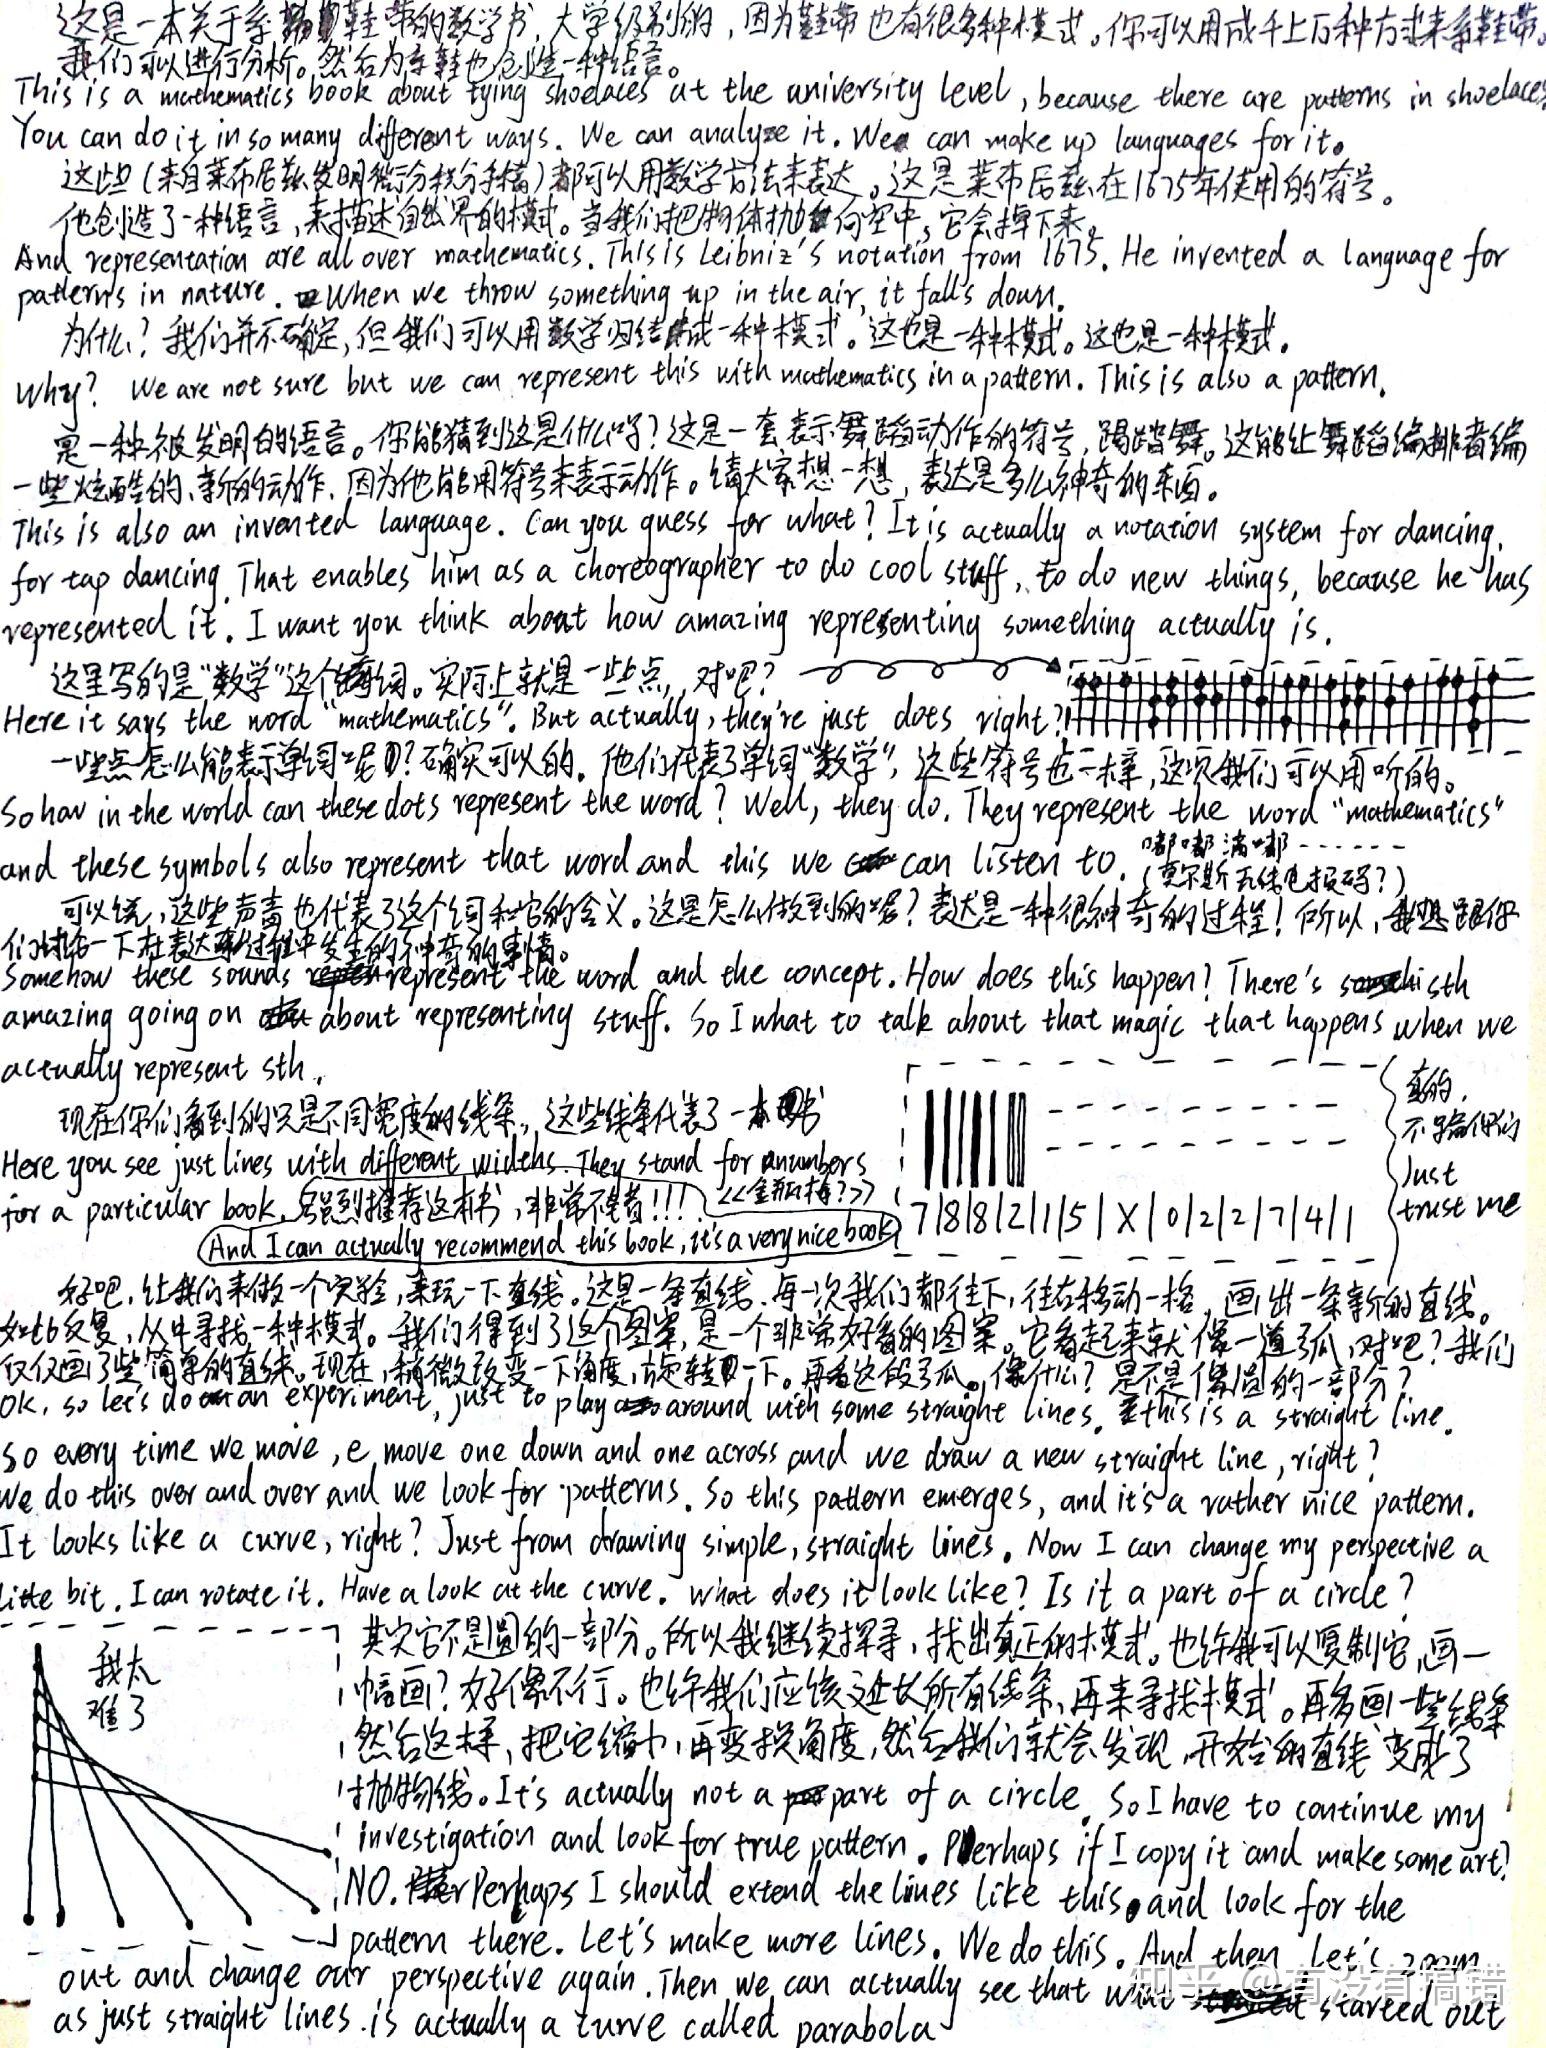 这是一本关于系鞋带的数学书，大学级别的，因为鞋带也有很多种模式。你可以用成千上万种方式来系鞋带。
我们可以进行分析。然后为系鞋也创造一种语言。
This is a mathematics book about tying shoelaces at the university level, because there are patterns in shoelaces.
You can do it in so many different ways. We can analyze it. We can make up languages for it.
这些(来自莱布尼兹发明微分积分手稿)都可以用数学方法来表达。这是莱布尼兹在1675年使用的符号。
他创造了一种语言，来描述自然界的模式。当我们把物体抛向空中，它会掉下来。
And representation are all over mathematics. This is Leibniz's notation from 1675. He invented a language for
patterns in nature. When we throw something up in the air, it falls down.
为什么？我们并不确定，但我们可以用数学归结成一种模式。这也是一种模式。这也是一种模式。
Why? We are not sure but we can represent this with mathematics in a pattern. This is also a pattern.
是一种被发明的语言。你能猜到这是什么吗？这是一套表示舞蹈动作的符号，踢踏舞。这能让舞蹈编排者编
一些炫酷的、新的动作，因为他能用符号来表示动作。请大家想一想，表达是多么神奇的东西。
This is also an invented language. Can you guess for what? It is actually a notation system for dancing,
for tap dancing. That enables him as a choreographer to do cool stuff, to do new things, because he has
represented it. I want you think about how amazing representing something actually is.
这里写的是"数学"这个单词。实际上就是一些点，对吧？
Here it says the word "mathematics". But actually, they're just dots right?
一些点怎么能表示单词呢？确实可以的。他们代表了单词"数学"，这些符号也一样，这次我们可以用听的。
So how in the world can these dots represent the word? Well, they do. They represent the word "mathematics"
and these symbols also represent that word and this we can listen to. 嘟嘟滴嘟------
(莫尔斯无线电报码？)
可以说，这些声音也代表了这个词和它的含义。这是怎么做到的呢？表达是一种很神奇的过程！所以，我想跟你
们讨论一下在表达过程中发生的神奇的事情。
Somehow these sounds represent the word and the concept. How does this happen? There's sth
amazing going on about representing stuff. So I what to talk about that magic that happens when we
actually represent sth.
现在你们看到的只是不同宽度的线条，这些线条代表了一本书
Here you see just lines with different widths. They stand for numbers
for a particular book. 强烈推荐这本书，非常不错!!! <<金瓶梅?>>
And I can actually recommend this book, it's a very nice book
7|8|8|2|1|5|X|0|2|2|7|4|1
真的，
不骗你们
Just
trust me
好吧，让我们来做一个实验，来玩一下直线。这是一条直线。每一次我们都往下，往右移动一格，画出一条新的直线。
如此反复，从中寻找一种模式。我们得到了这个图案，是一个非常好看的图案。它看起来就像一道弧，对吧？我们
仅仅画了些简单的直线。现在，稍微改变一下角度，旋转一下。再看这段弧。像什么？是不是像圆的一部分？
Ok, so let's do an experiment, just to play around with some straight lines. this is a straight line.
So every time we move, e move one down and one across and we draw a new straight line, right?
We do this over and over and we look for patterns. So this pattern emerges, and it's a rather nice pattern.
It looks like a curve, right? Just from drawing simple, straight lines. Now I can change my perspective a
little bit. I can rotate it. Have a look at the curve. What does it look like? Is it a part of a circle?
我太
难了
其实它不是圆的一部分。所以我继续探寻，找出真正的模式。也许我可以复制它，画一
幅画？好像不行。也许我们应该延长所有线条，再来寻找模式。再多画一些线条
然后这样，把它缩小，再变换角度，然后我们就会发现，开始的直线变成了
抛物线。It's actually not a part of a circle. So I have to continue my
investigation and look for true pattern. Perhaps if I copy it and make some art?
NO. Perhaps I should extend the lines like this and look for the
pattern there. Let's make more lines. We do this. And then Let's zoom
out and change our perspective again. Then we can actually see that what started out
as just straight lines is actually a curve called parabola
知乎 @有没有搞错